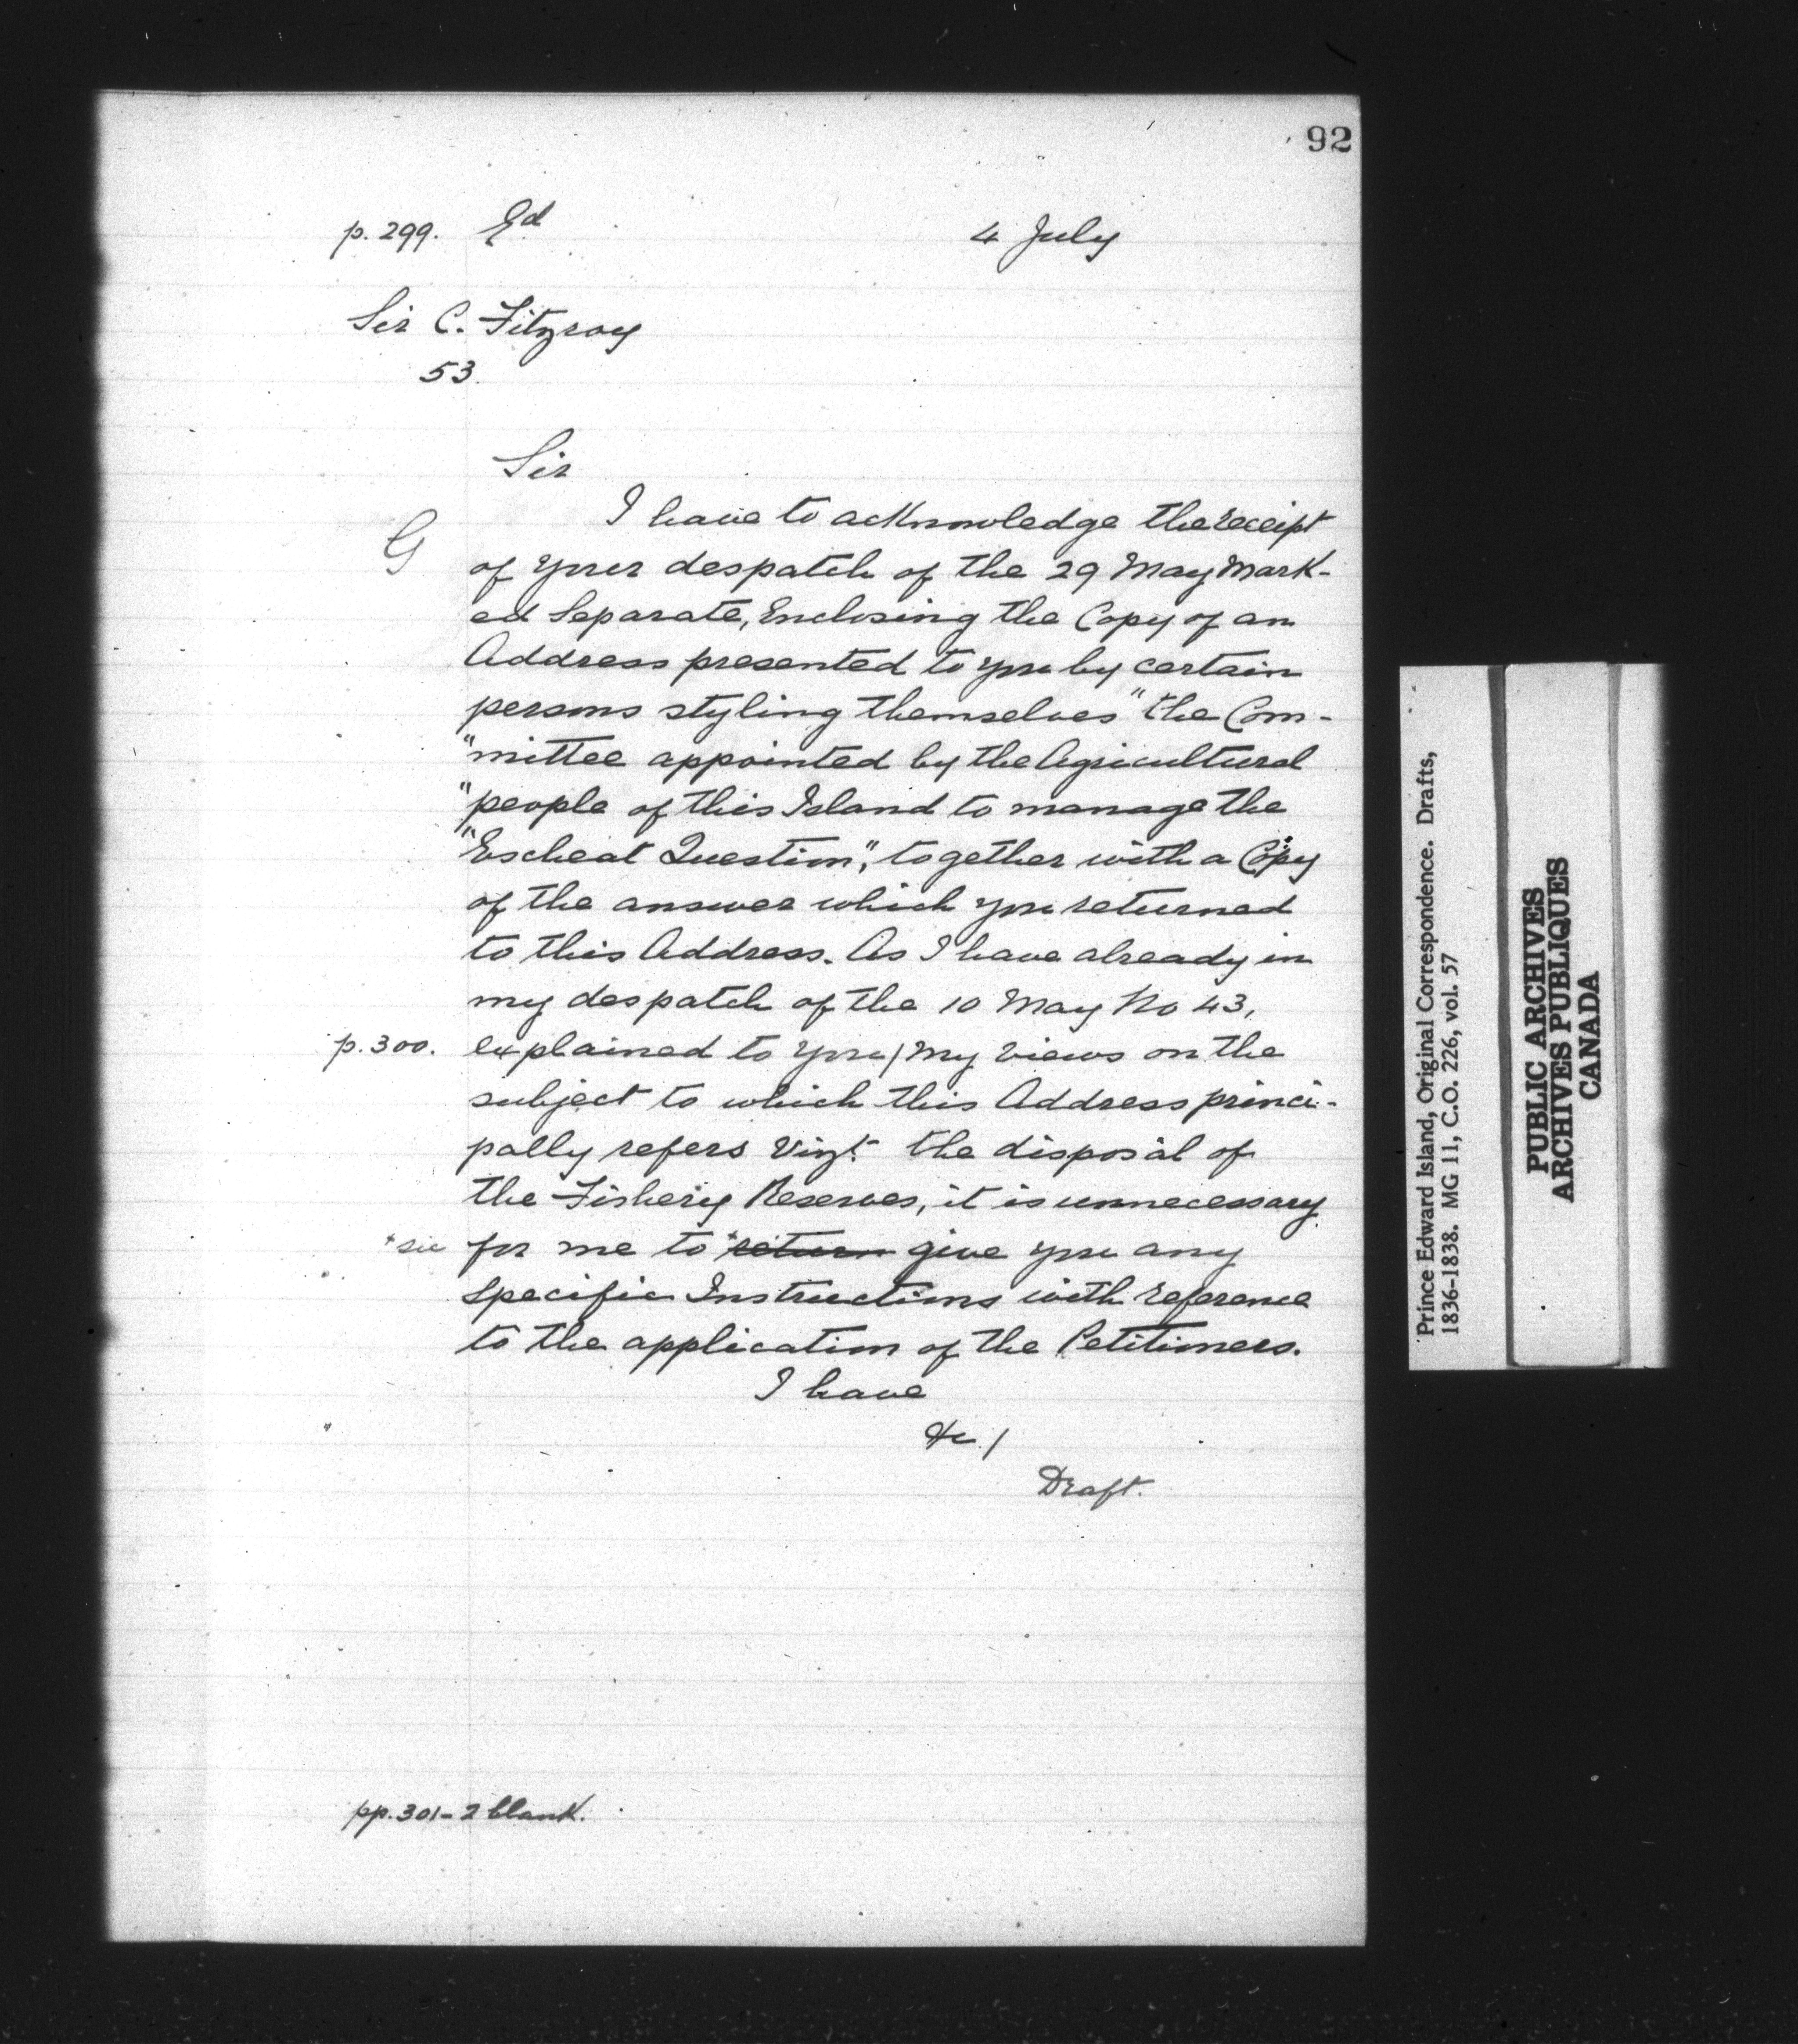 92
p. 299. Ed 4 July
Sir C. Fitzroy
53.
Sir
I have to acknowledge the receipt
G of your despatch of the 29 May Mark-
ed Separate, Enclosing the Copy of an
Address presented to you by certain
persons styling themselves "the Com-
"mittee appointed by the Agricultural
"people of this Island to manage the
"Escheat Question", together with a Copy
of the answer which you returned
to this Address. As I have already in
my despatch of the 10 May No 43,
p. 300. explained to you / my views on the
subject to which this Address princi-
pally refers Vizt. the disposal of
the Fishery Reserves, it is unnecessary
+sic for me to +return give you any
specific Instructions with reference
to the application of the Petitioners.
I have
&c /
Draft.
pp. 301-2 blank.
Prince Edward Island, Original Correspondence. Drafts,
1836-1838. MG 11, C.O. 226, vol. 57
PUBLIC ARCHIVES
ARCHIVES PUBLIQUES
CANADA